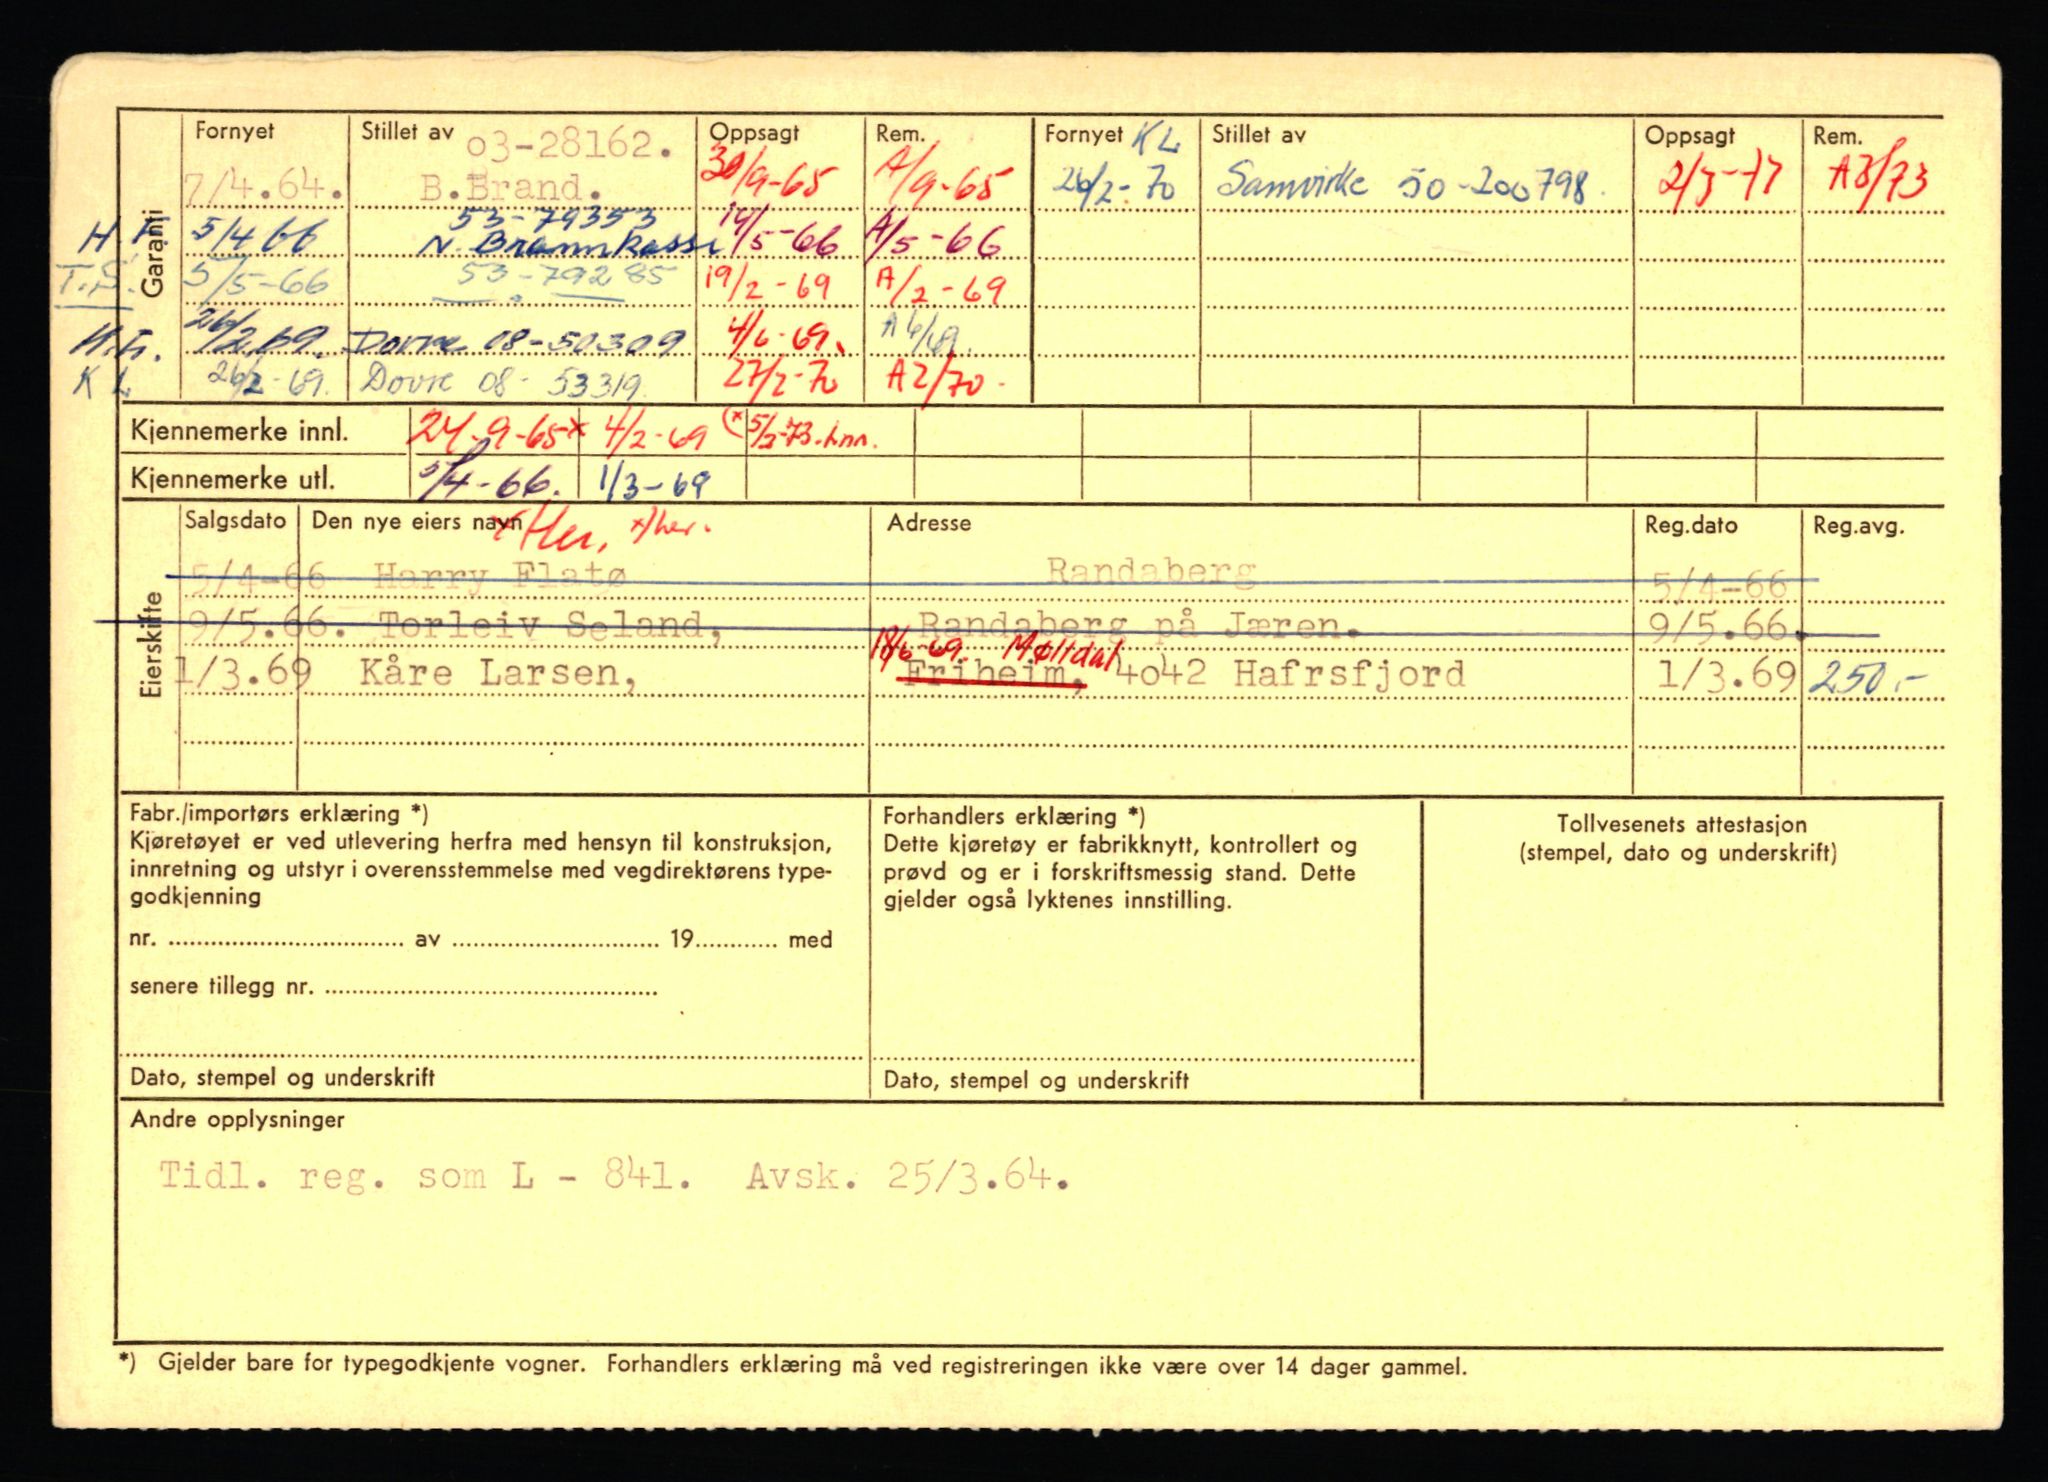 Garanti Fornyet Stillet av Oppsagt Rem. Fornyet KL Stillet av Oppsagt Rem.
7/4.64. 03-28162. B.Brand. 30/9-65 A/9-65 26/2-70 Samvirke 50-200798. A3/73
H F 5/4 66 53-79353 N. Brannkasse 14/5-66 A/5-66
T.S. 5/5-66 53-79285 19/2-69 A/2-69
H.F. 26/2.69. Dovre 08-50309 4/6-69. A 6/69.
KL 26/2-69. Dovre 08-53319. 27/2-70 A2/70.
Kjennemerke innl. 24-9-65 x 4/2-69 (x 5/3-73.Inn.
Kjennemerke utl. 5/4-66. 1/3-69
Eierskifte Salgsdato Den nye eiers navn x Her. x) her. Adresse Reg.dato Reg.avg.
5/4-66 Harry Flatø Randaberg 5/4-66
9/5.66. Torleiv Seland, Randaberg på Jæren. 9/5.66.
18/6-69. Møltdal
1/3.69 Kåre Larsen, Friheim, 4042 Hafrsfjord 1/3.69 250.-
Fabr./importørs erklæring *)
Kjøretøyet er ved utlevering herfra med hensyn til konstruksjon,
innretning og utstyr i overensstemmelse med vegdirektørens type-
godkjenning
nr. av 19 med
senere tillegg nr.
Dato, stempel og underskrift
Forhandlers erklæring *)
Dette kjøretøy er fabrikknytt, kontrollert og
prøvd og er i forskriftsmessig stand. Dette
gjelder også lyktenes innstilling.
Dato, stempel og underskrift
Tollvesenets attestasjon
(stempel, dato og underskrift)
Andre opplysninger
Tidl. reg. som L - 841. Avsk. 25/3.64.
*) Gjelder bare for typegodkjente vogner. Forhandlers erklæring må ved registreringen ikke være over 14 dager gammel.